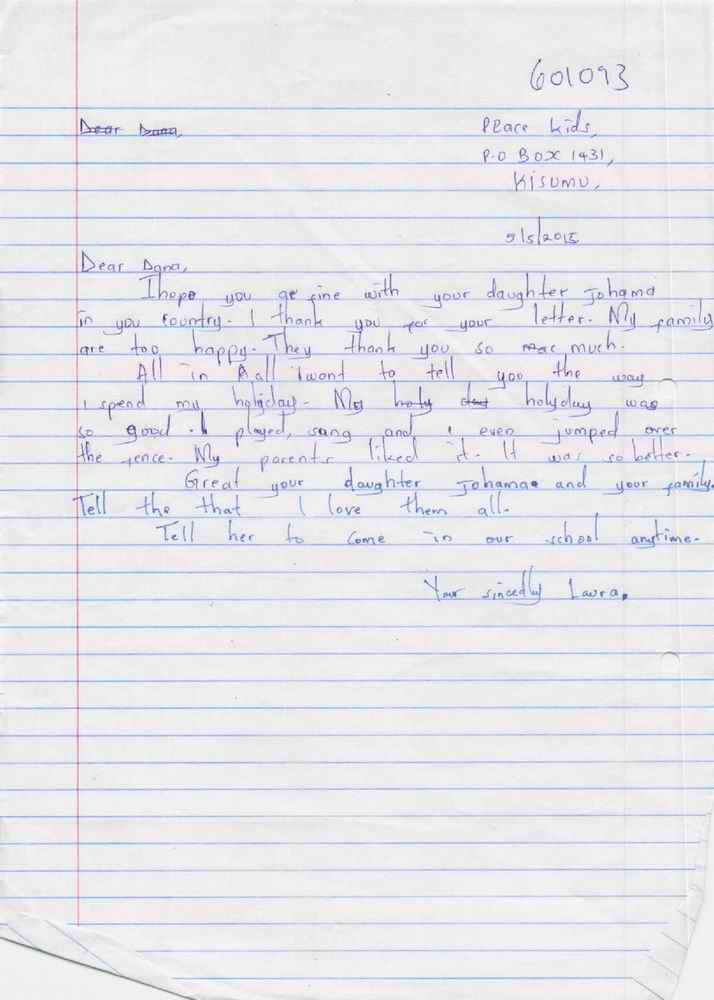 601093
Dear Dana,
Peace kids,
P.O BOX 1431,
Kisumu,
5/5/2015
Dear Dana,
I hope you are fine with your daughter Johama
in you country. I thank you for your letter. My family
are too happy. They thank you so much.
All in A all i wont to tell you the way
i spend my holyday. My holy day holyday was
so good. I played, sang and i even jumped over
the fence. My parents liked it. It was so better.
Great your daughter Johama and your family.
Tell the that I love them all.
Tell her to come in our school anytime.
Your sincedly Laura.